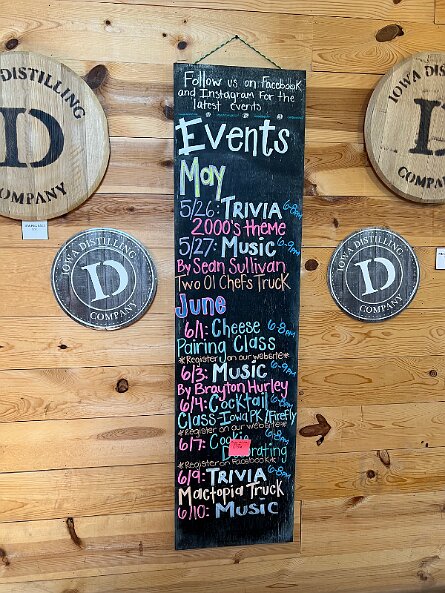 Follow us on Facebook
and Instagram for the
latest events
Events
May
5/26: TRIVIA 6-8pm
2000's theme
5/27: Music 6-9pm
By Sean Sullivan
Two Ol Chefs Truck
June
6/1: Cheese 6-8pm
Pairing Class
*Register on our website*
6/3: Music 6-9pm
By Brayton Hurley
6/4: Cocktail 6-8pm
Class-Iowa PK/Firefly
*Register on our website*
6/7: Cookie 6-8pm
Decorating
*Register on Facebook*
6/9: TRIVIA 6-8pm
Mactopia Truck
6/10: Music
IOWA DISTILLING
D
COMPANY
IOWA DISTILLING
D
COMPANY
IOWA DISTILLING
D
COMPANY
IOWA DISTILLING
D
COMPANY